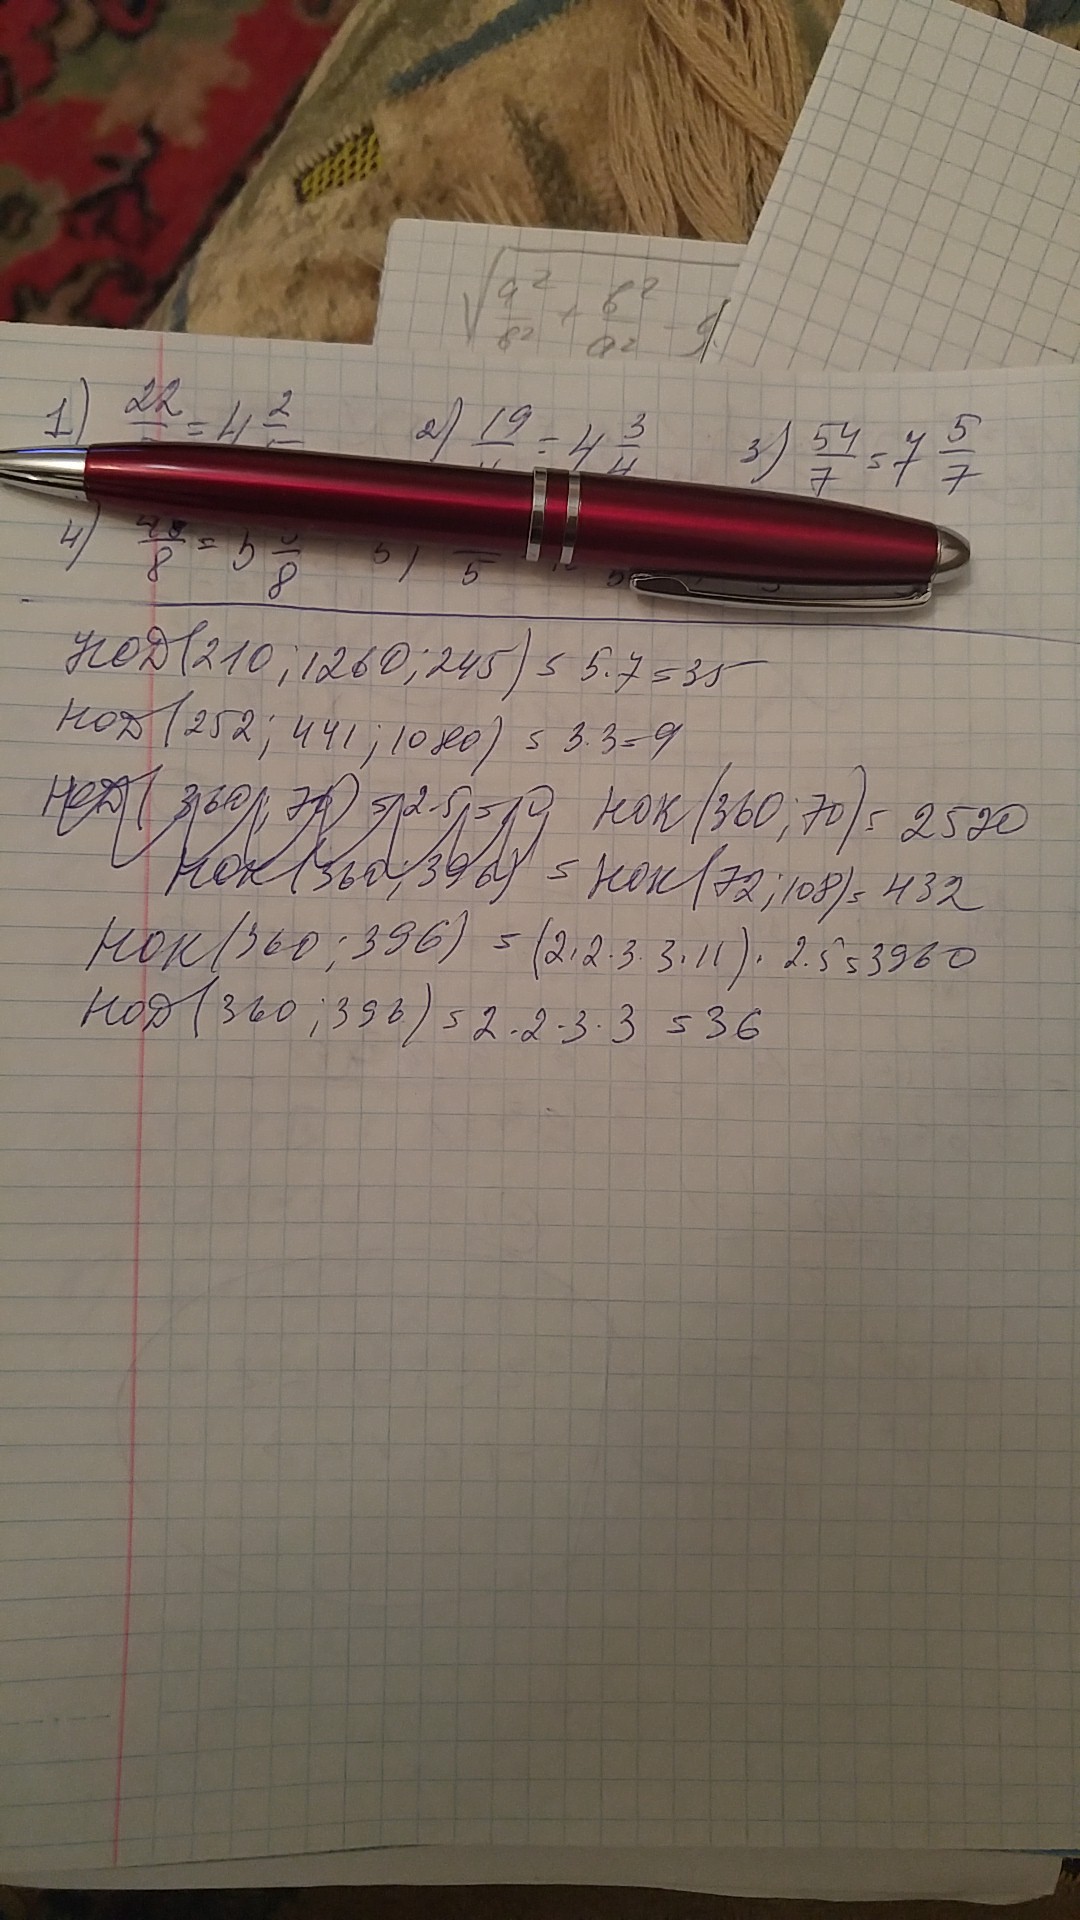 √ a²/b² + b²/a² -
1) 22 = 4 2 2) 19 = 4 3/4 3) 54/7 = 7 5/7
4) /8 = 5 /8 5) 5
НОД(210; 1260; 245) = 5·7=35
НОД(252; 441; 1080) = 3·3=9
НОД(360; 70) = 2·5=10 НОК(360; 70)= 2520
НОК(360; 396) = НОК(72; 108)= 432
НОК(360; 396) = (2·2·3·3·11)·2·5=3960
НОД(360; 396) = 2·2·3·3 = 36